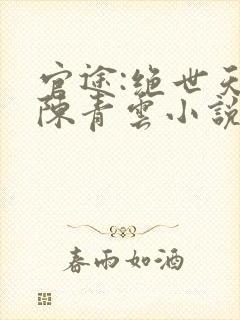 官途:绝世天
陈青雲小說
春雨如酒